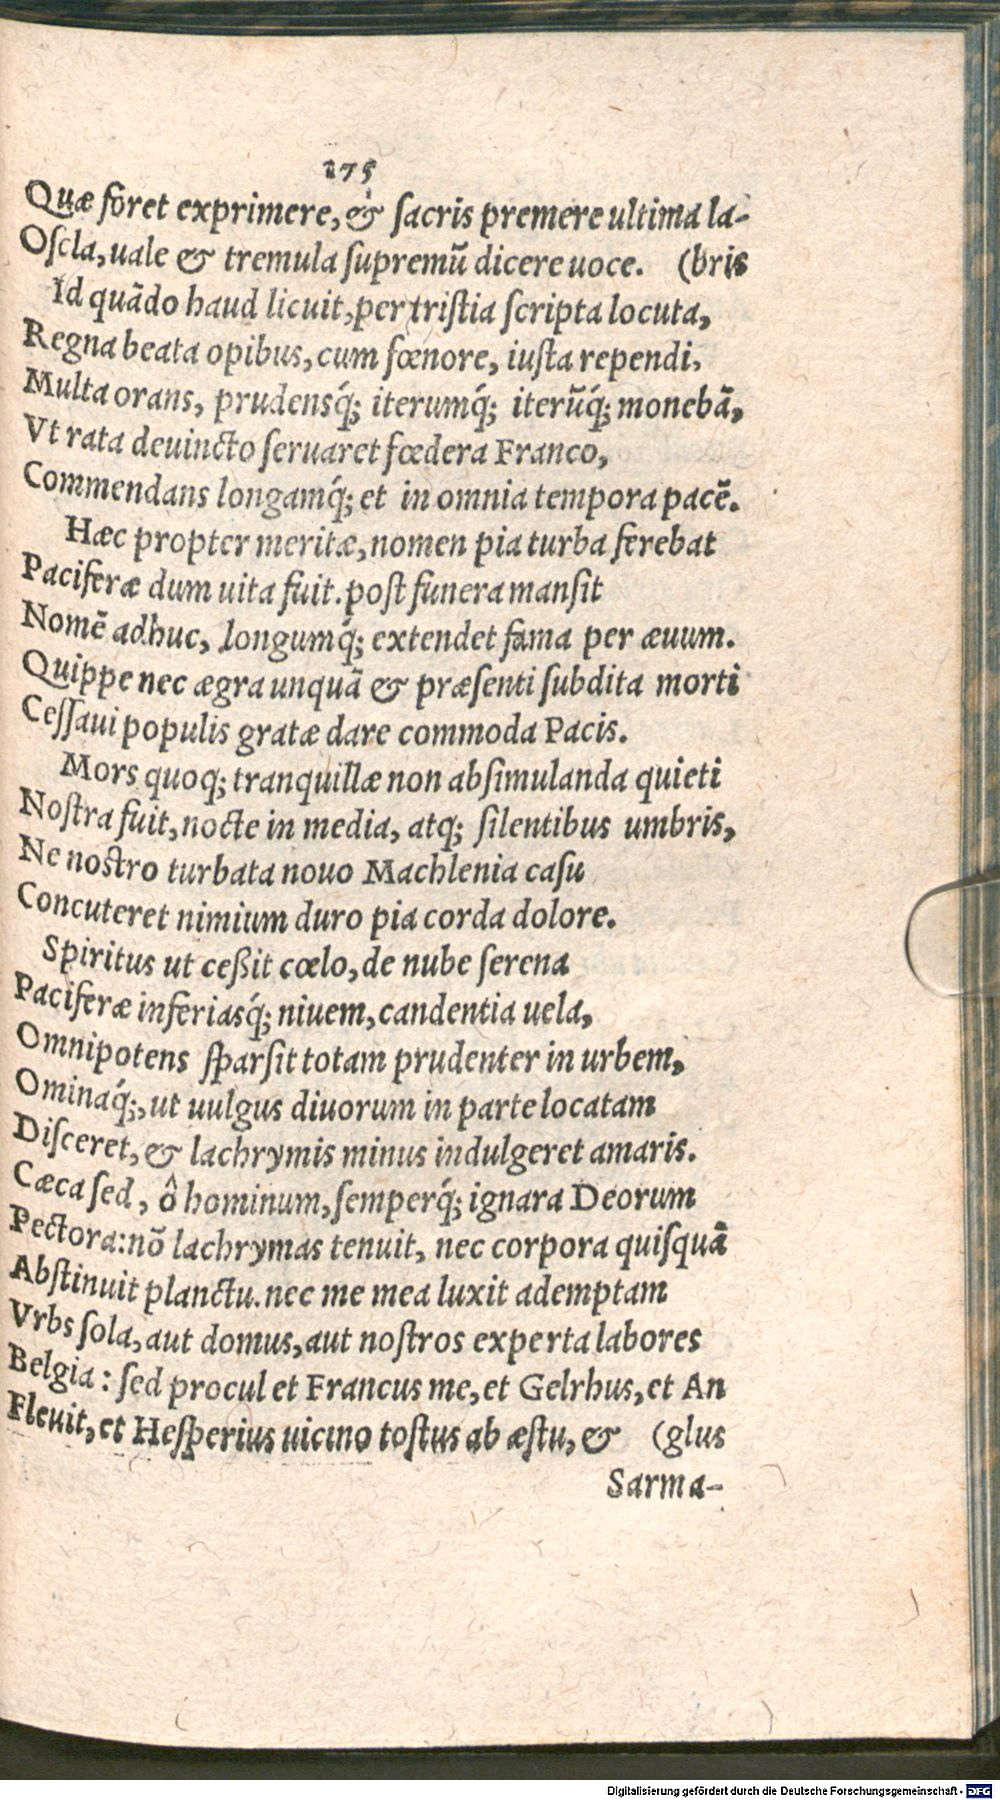 275
Quæ foret exprimere, & sacris premere ultima la-
Oscla, uale & tremula supremũ dicere uoce. (bris
Id quãdo haud licuit, per tristia scripta locuta,
Regna beata opibus, cum fœnore, iusta rependi,
Multa orans, prudensq́; iterumq́; iterũq́; monebã,
Vt rata deuincto seruaret fœdera Franco,
Commendans longamq́; et in omnia tempora pacẽ.
Hæc propter meritæ, nomen pia turba ferebat
Paciferæ dum uita fuit. post funera mansit
Nomẽ adhuc, longumq́; extendet fama per æuum.
Quippe nec ægra unquã & præsenti subdita morti
Cessaui populis gratæ dare commoda Pacis.
Mors quoq; tranquillæ non absimulanda quieti
Nostra fuit, nocte in media, atq; silentibus umbris,
Ne nostro turbata nouo Machlenia casu
Concuteret nimium duro pia corda dolore.
Spiritus ut ceßit cœlo, de nube serena
Paciferæ inferiasq́; niuem, candentia uela,
Omnipotens sparsit totam prudenter in urbem,
Ominaq́;, ut uulgus diuorum in parte locatam
Disceret, & lachrymis minus indulgeret amaris.
Cæca sed, ô hominum, semperq́; ignara Deorum
Pectora: nõ lachrymas tenuit, nec corpora quisquã
Abstinuit planctu. nec me mea luxit ademptam
Vrbs sola, aut domus, aut nostros experta labores
Belgia: sed procul et Francus me, et Gelrhus, et An
Fleuit, et Hesperius uicino tostus ab æstu, & (glus
Sarma-
Digitalisierung gefördert durch die Deutsche Forschungsgemeinschaft - DFG